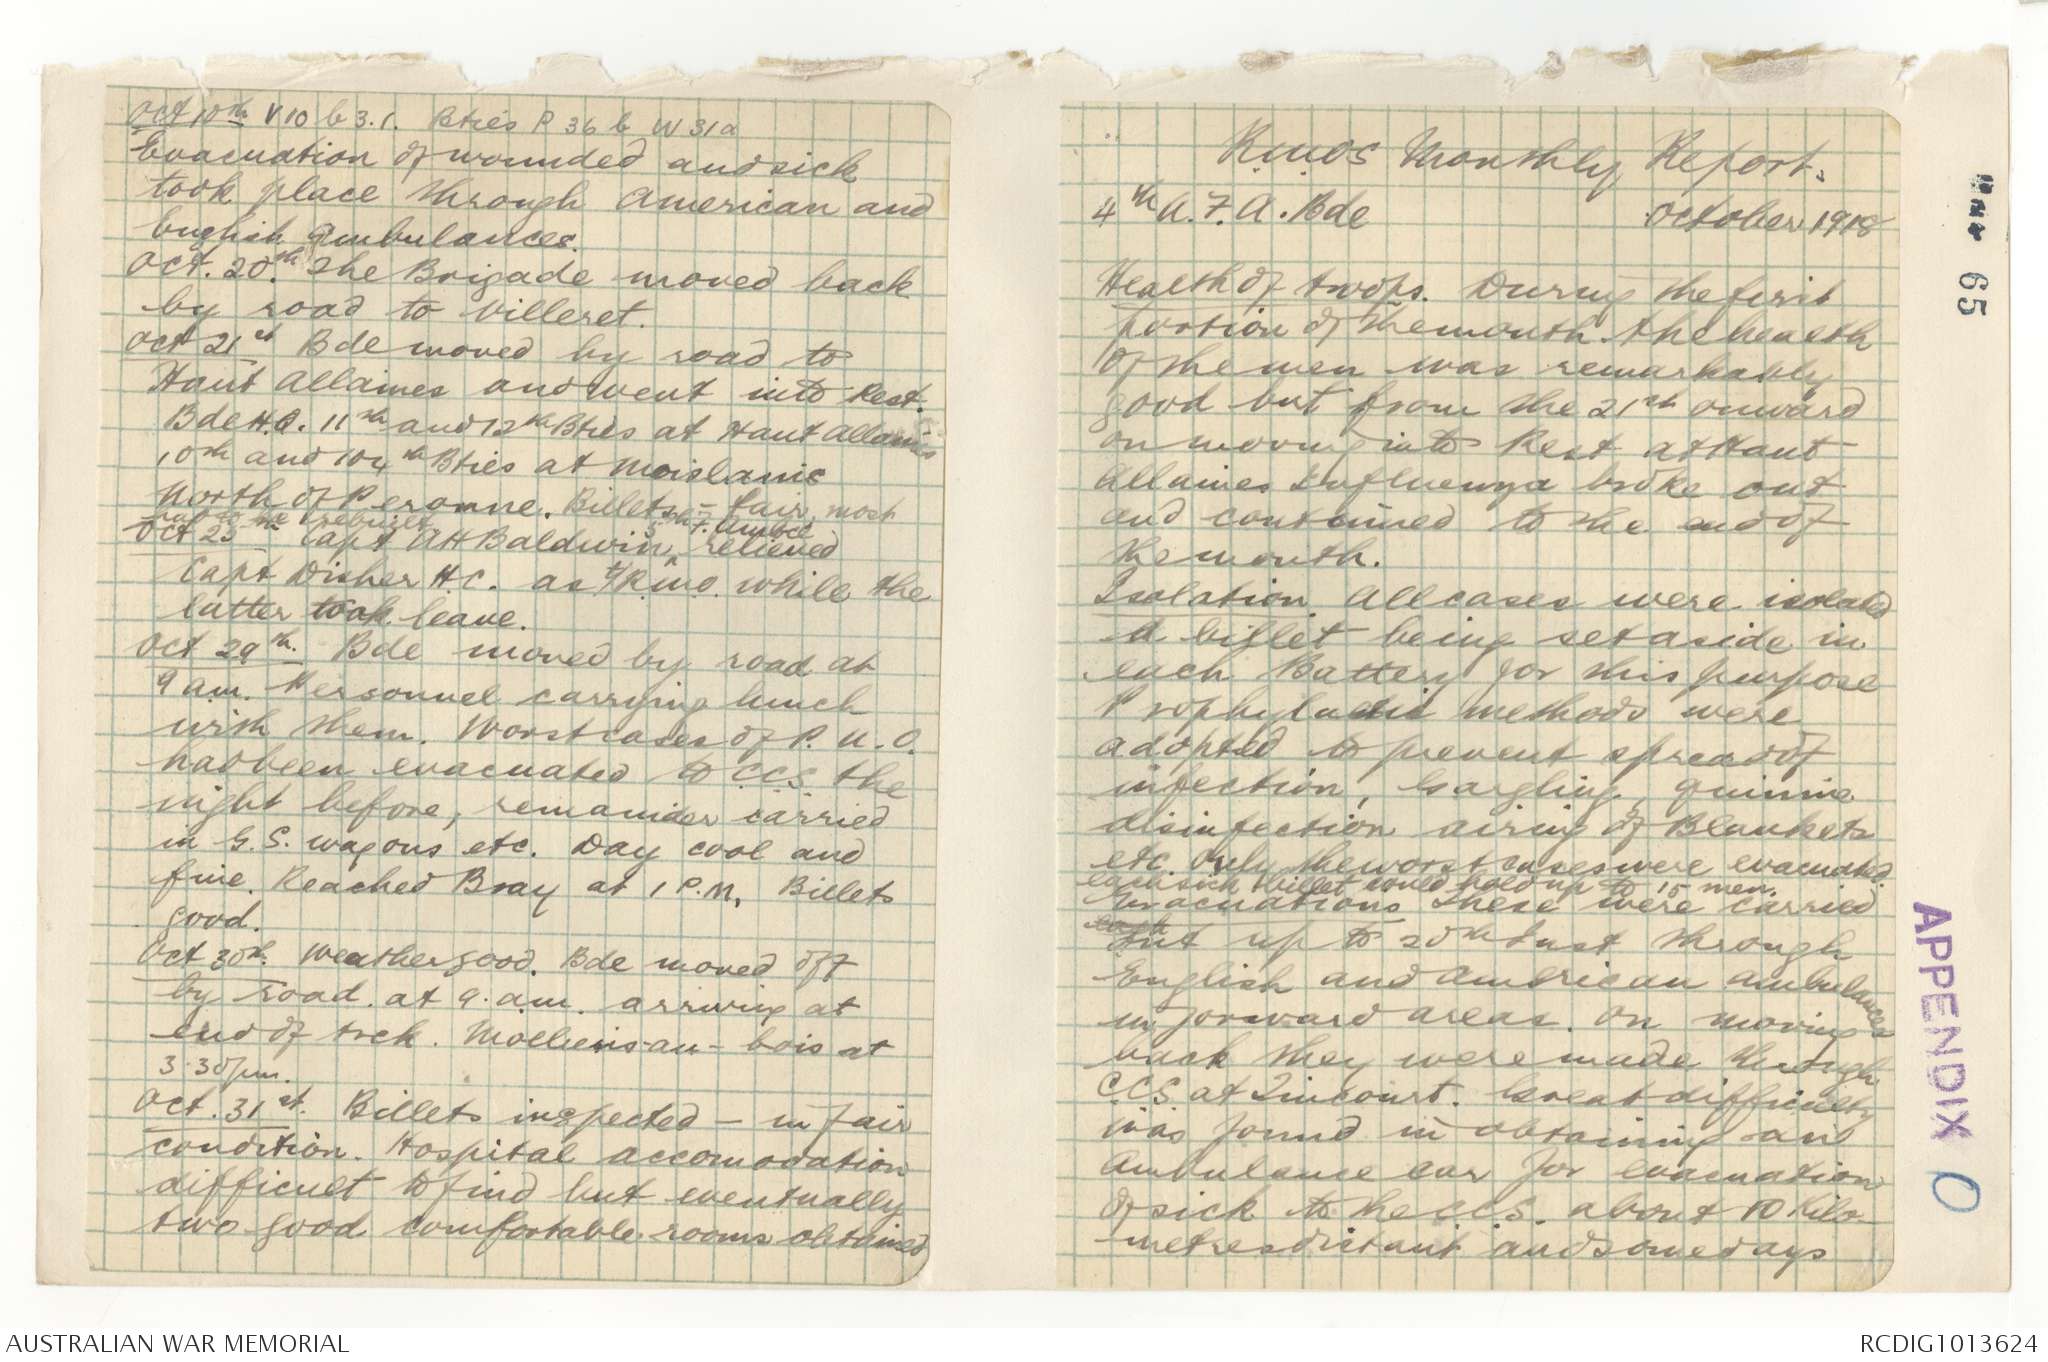 Oct 10th V 10 b 3.1. Btries P 36 b W 31a
Evacuation of wounded and sick
took place through American and
English Ambulances.
Oct. 20th. The Brigade moved back
by road to Villeret.
Oct 21st Bde moved by road to
Haut Allaines and went into Rest.
Bde H.Q. 11th and 12th Btries at Haut Allaines
10th and 104th Btries at Moislanis
North of Peronne. Billets - fair, most
had to be rebuilt.
5th F. Ambce
Oct 25th Capt AH Baldwin, relieved
Capt Disher H.C. as T/R.M.O. while the
latter took leave.
Oct 29th. Bde moved by road at
9 am. Personnel carrying lunch
with them. Worst cases of P.U.O.
had been evacuated to C.C.S. the
night before, remainder carried
in G.S. wagons etc. Day cool and
fine. Reached Bray at 1 P.M. Billets
good.
Oct 30th. Weather good. Bde moved off
by road. at 9. am. arriving at
end of trek. Molliens-au-bois at
3.30 pm.
Oct. 31st. Billets inspected - in fair
condition. Hospital accomodation
difficult to find but eventually
two good comfortable rooms obtained
RMOS Monthly Report.
4th A.F.A. Bde October 1918
Health of troops. During the first
portion of the month the health
of the men was remarkably
good but from the 21st onward
on moving into Rest at Haut
Allaines Influenza broke out
and continued to the end of
the month.
Isolation. All cases were isolated
a billet being set aside in
each Battery for this purpose
Prophylactic methods were
adopted to prevent spread of
infection, Gargling, quinine
disinfection airing of Blankets
etc. Only the worst cases were evacuated.
each sick billet could hold up to 15 men.
Evacuations These were carried
out up to 20th Inst through
English and American Ambulances
in forward areas. On moving
back they were made through
C.C.S at Tincourt. Great difficulty
was found in obtaining an
Ambulance car for evacuation
of sick to the C.C.S. about 10 Kilo-
metres distant and some days
65
APPENDIX O
AUSTRALIAN WAR MEMORIAL
RCDIG1013624